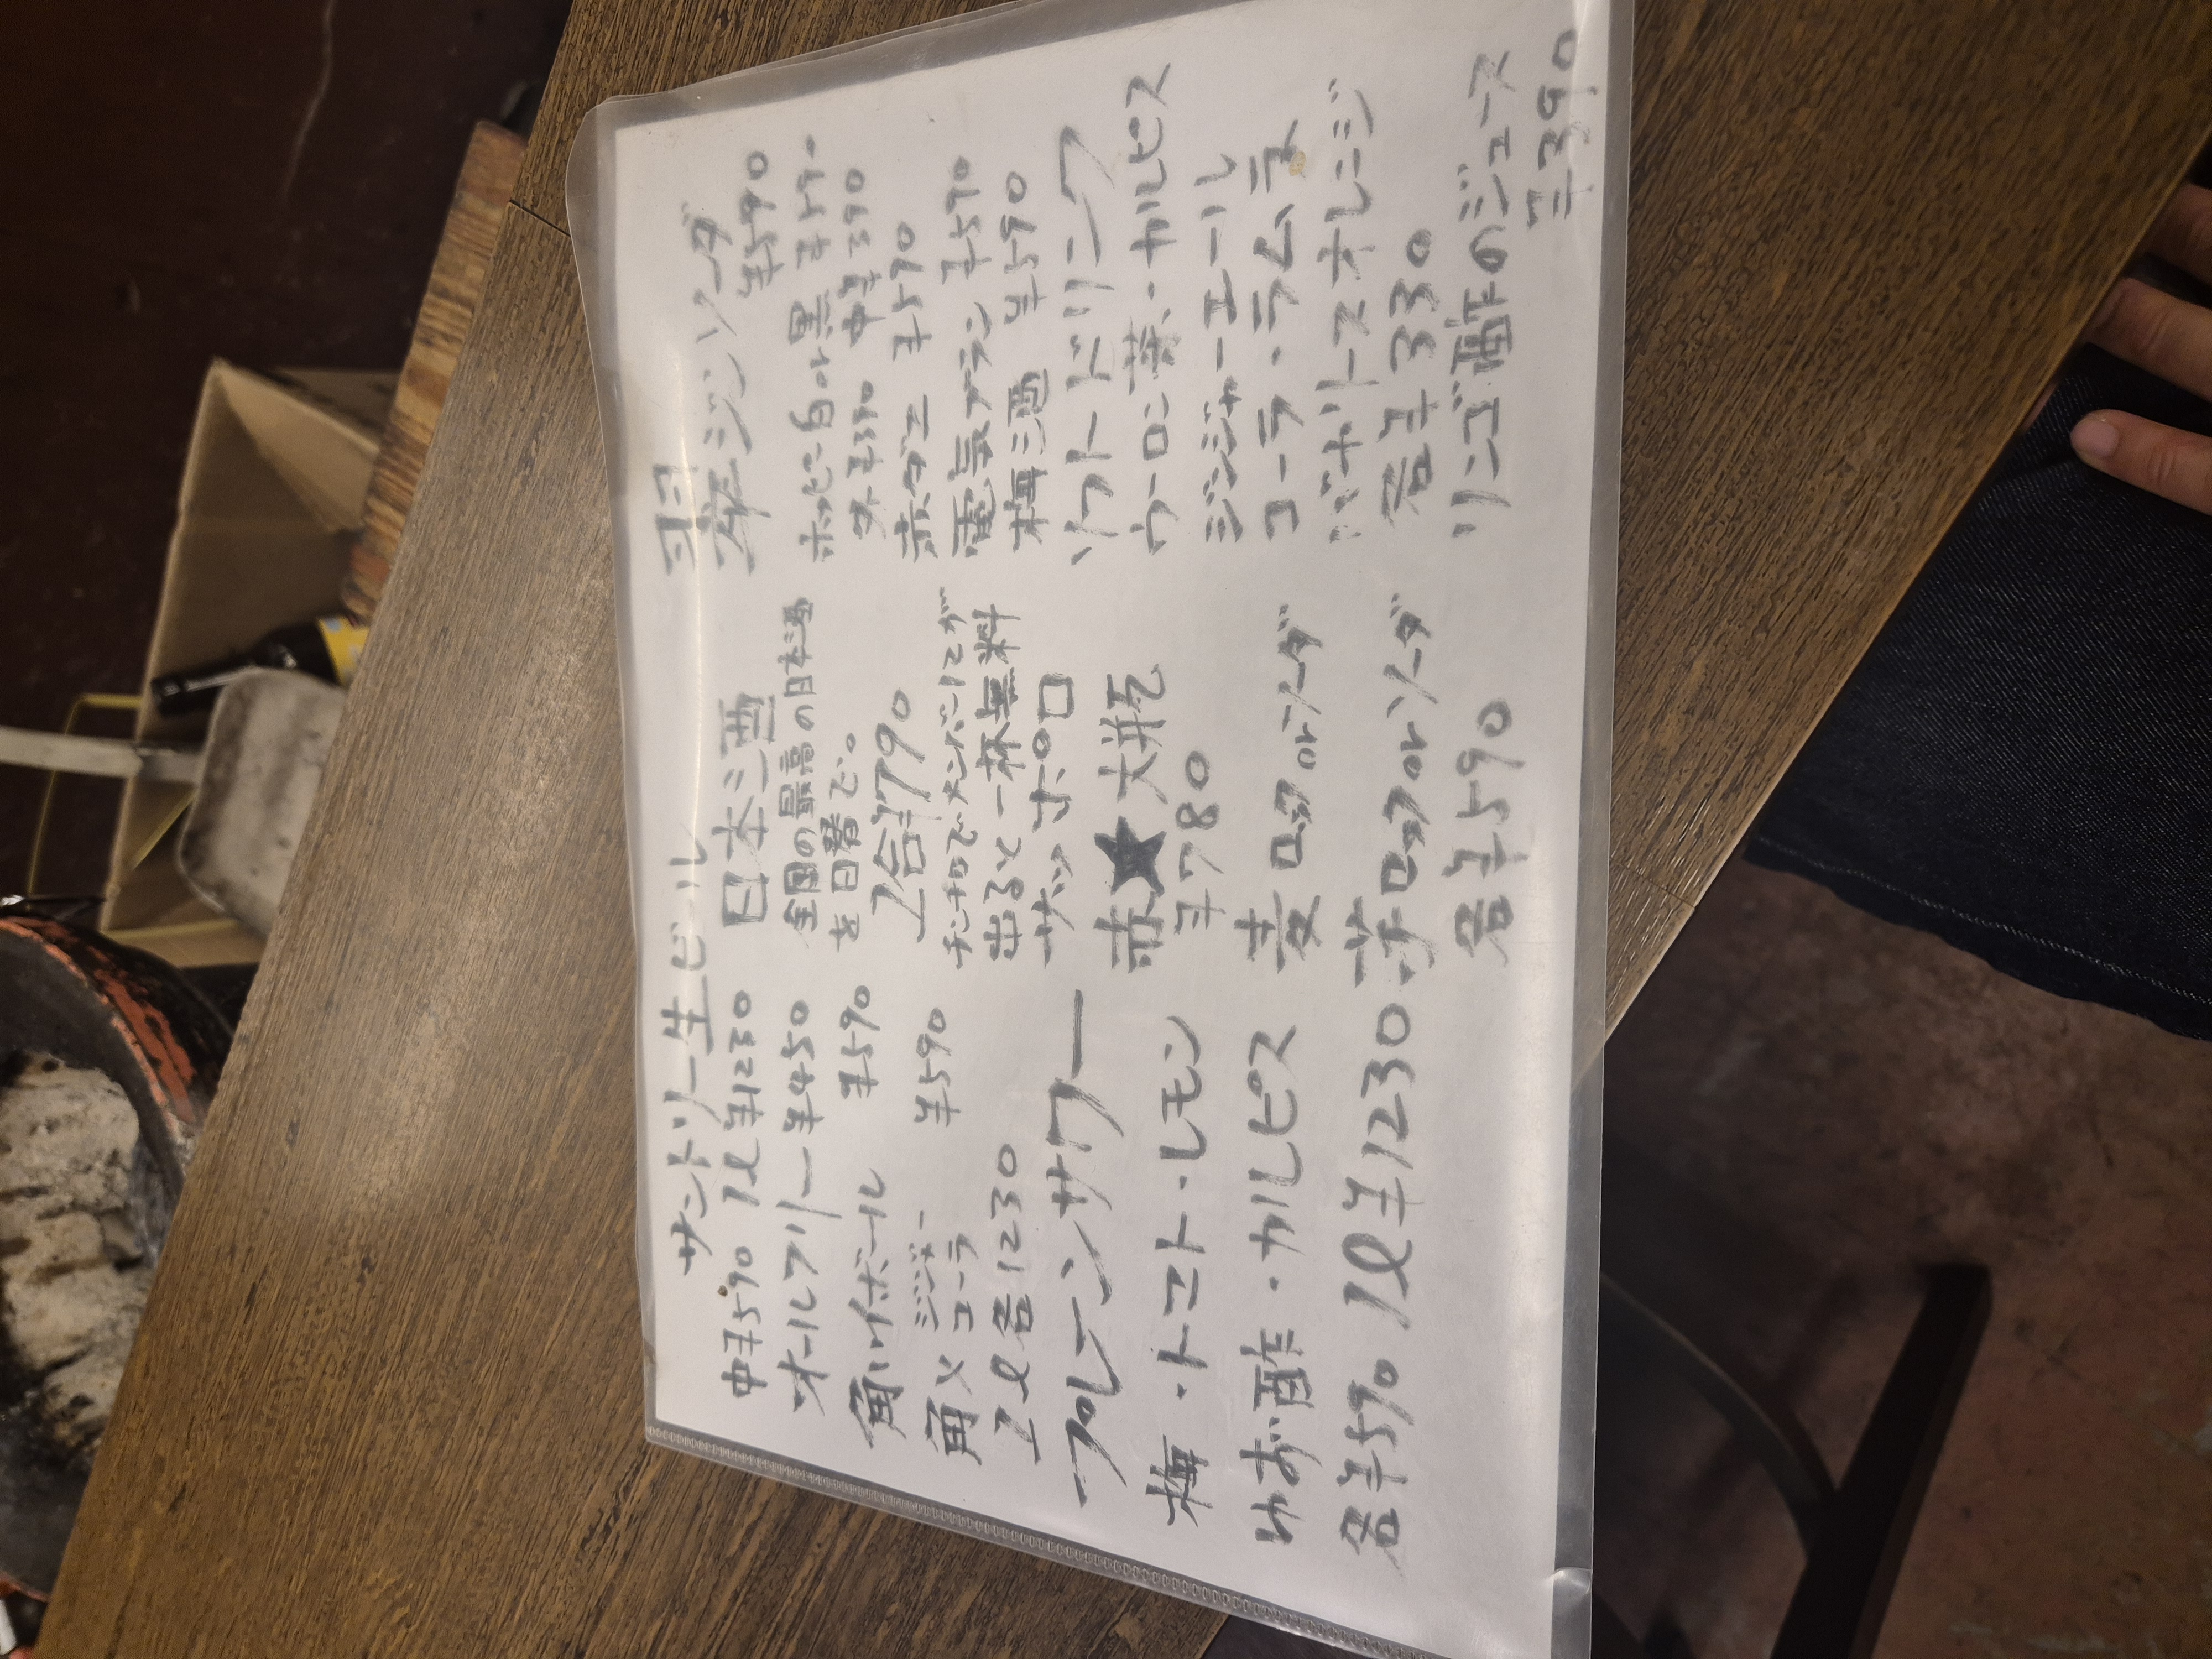 サントリー生ビール
中¥590 1ℓ ¥1230
オールフリー ¥450
角ハイボール ¥590
角メ ジンジャー
コーラ ¥590
1ℓ各1230
プレーンサワー
梅・トマト・レモン
ゆず酢・カルピス
各¥590 1ℓ¥1230
日本酒
全国の最高の日本酒
を日替で。
1合¥790
チンチロでメンバー12が
出ると一杯無料
サッポロ
赤★大瓶
¥780
麦ロックorソーダ
芋ロックorソーダ
各¥590
翠ジンソーダ
¥590
ホッピー白or黒
外¥390 中¥390
赤ダニ ¥590
電気ブラン ¥590
梅酒 ¥590
ソフトドリンク
ウーロン茶・カルピス
ジンジャーエール
コーラ・ラムネ
バヤリースオレンジ
各¥330
リンゴ酢のジュース
¥390